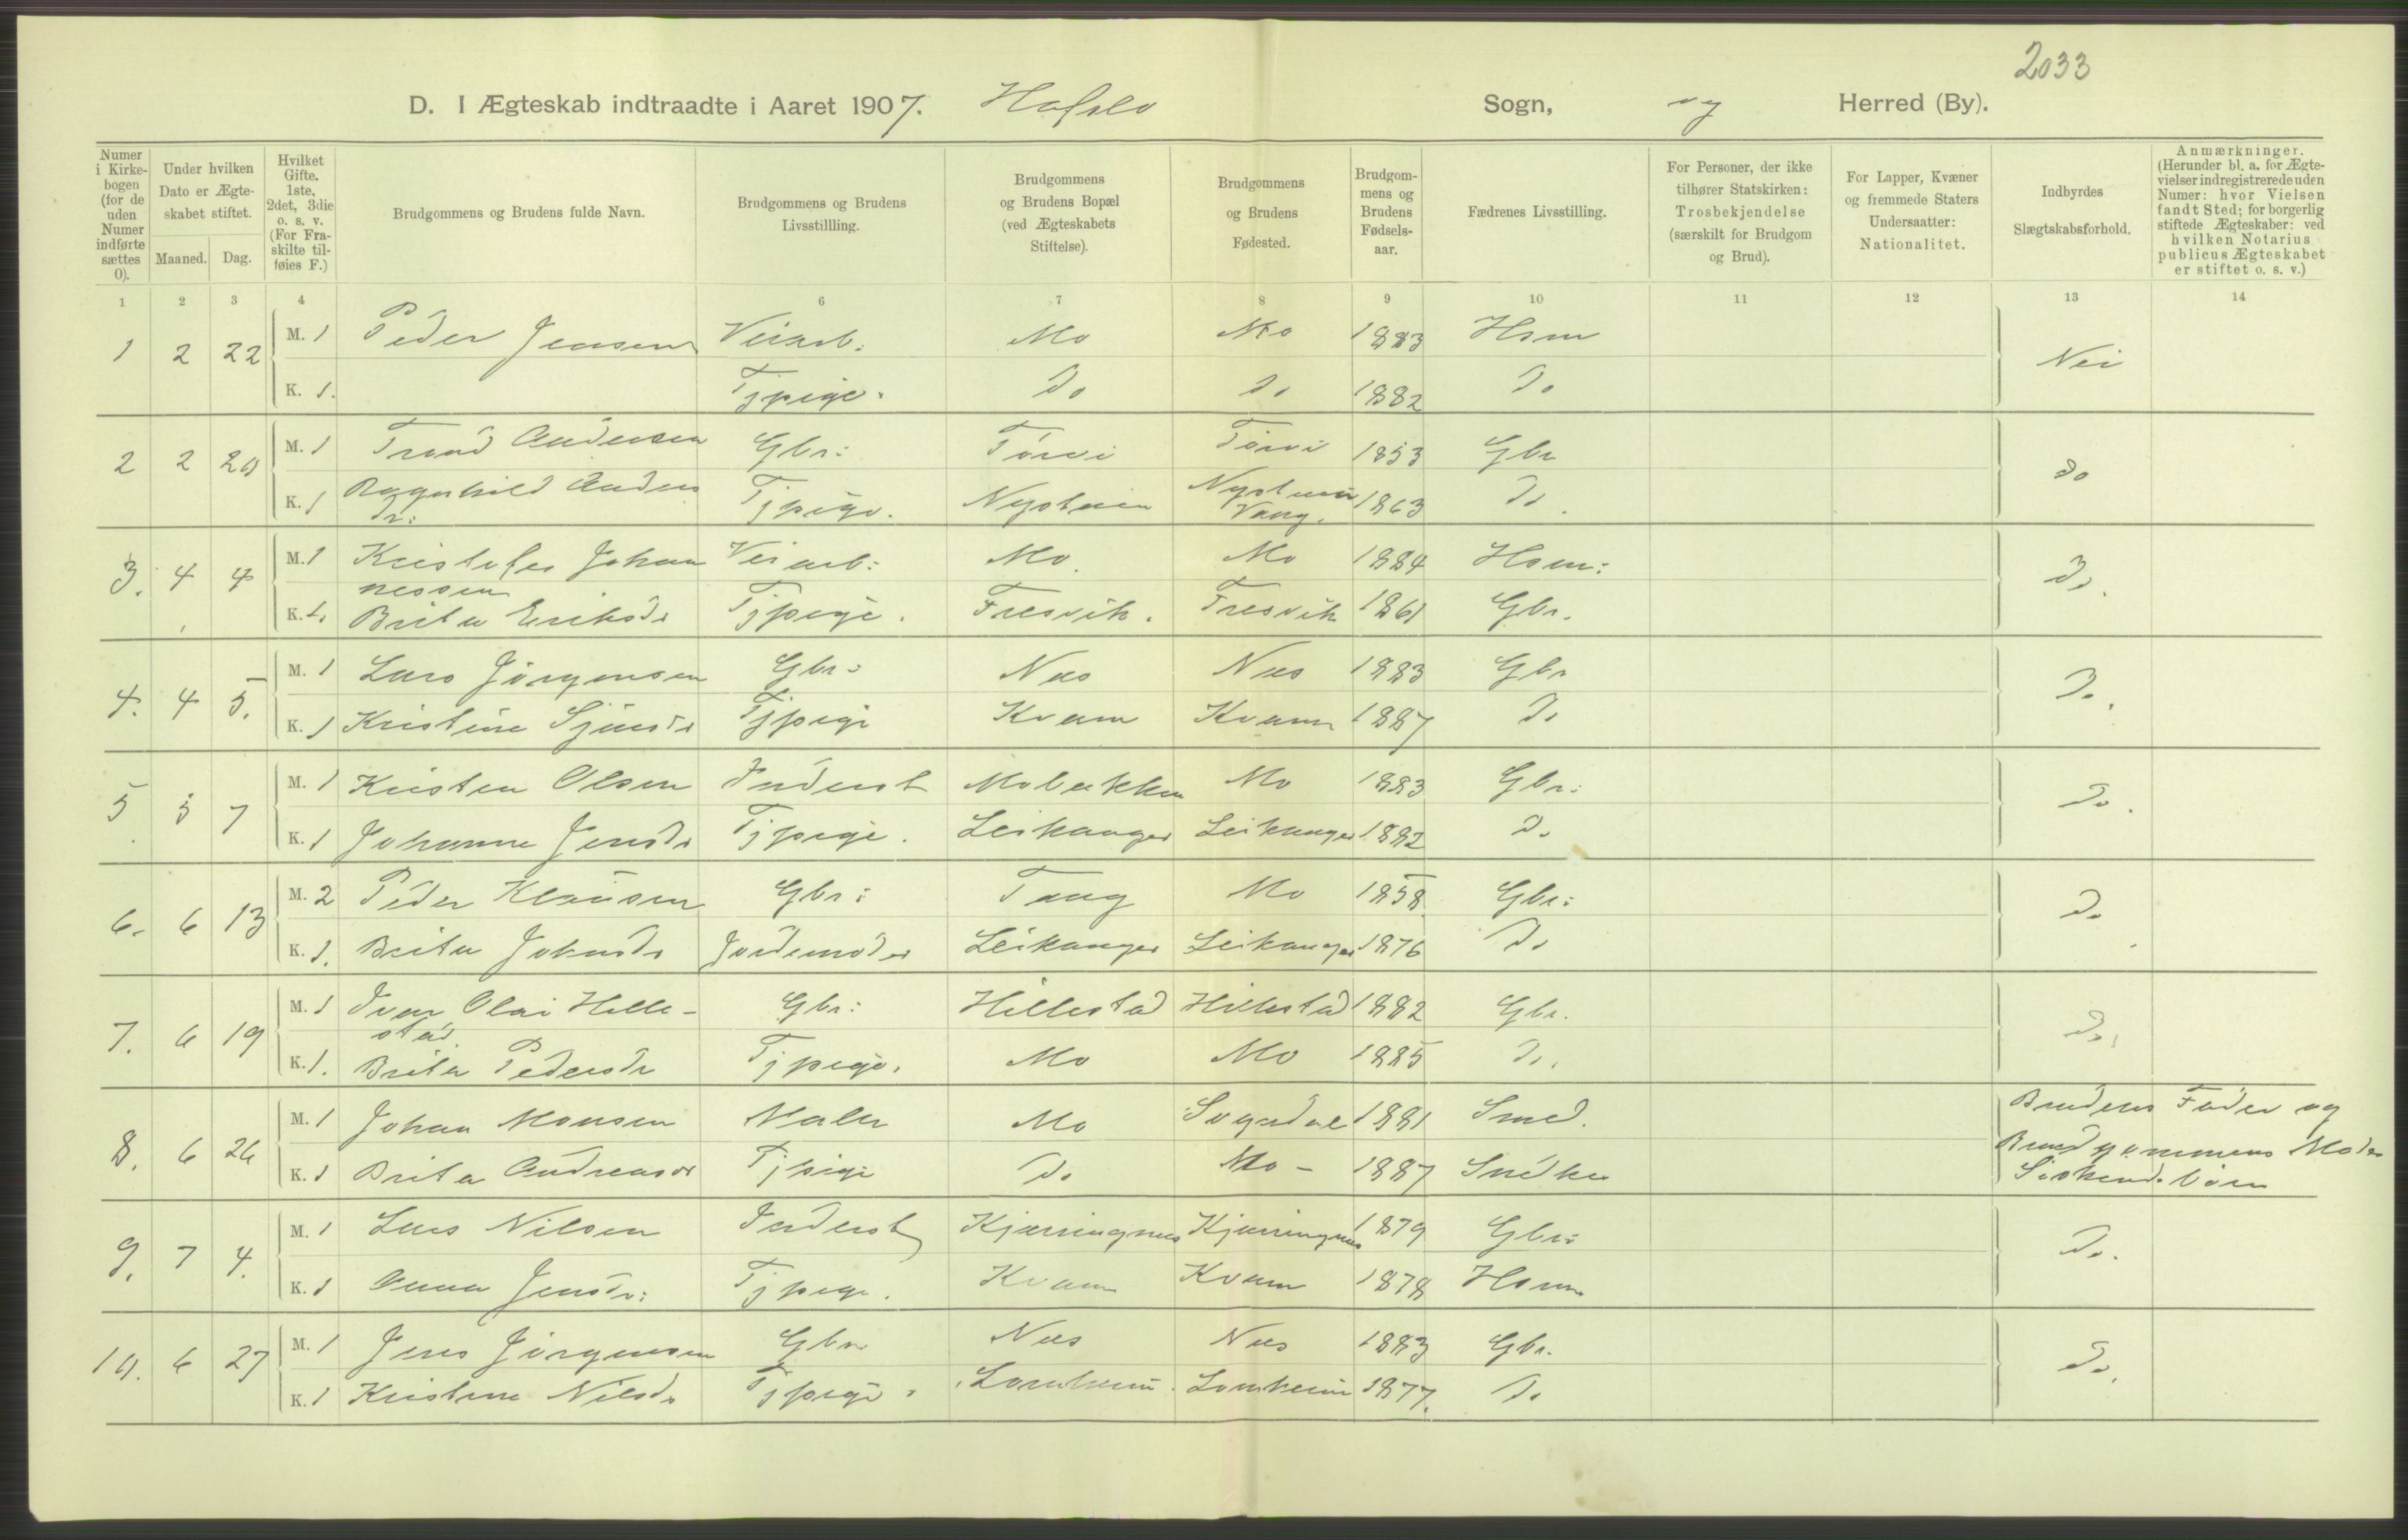 2033
D. I Ægteskab indtraadte i Aaret 1907. Hafslo Sogn, og Herred (By).
Numer i Kirkebogen (for de uden Numer indførte sættes 0).
Under hvilken Dato er Ægteskabet stiftet.
Maaned. Dag.
Hvilket Gifte. 1ste, 2det, 3die o. s. v. (For Fraskilte tilføies F.)
Brudgommens og Brudens fulde Navn.
Brudgommens og Brudens Livsstillling.
Brudgommens og Brudens Bopæl (ved Ægteskabets Stiftelse).
Brudgommens og Brudens Fødested.
Brudgommens og Brudens Fødselsaar.
Fædrenes Livsstilling.
For Personer, der ikke tilhører Statskirken: Trosbekjendelse (særskilt for Brudgom og Brud).
For Lapper, Kvæner og fremmede Staters Undersaatter: Nationalitet.
Indbyrdes Slægtskabsforhold.
Anmærkninger. (Herunder bl. a. for Ægtevielser indregistrerede uden Numer: hvor Vielsen fandt Sted; for borgerlig stiftede Ægteskaber: ved hvilken Notarius publicus Ægteskabet er stiftet o. s. v.)
1 2 3 4 6 7 8 9 10 11 12 13 14
1 2 22 M. 1 Peder Jensen Veiarb: Mo Mo 1883 Hsm Nei
K. 1. Tjpige. Do do 1882 Do
2 2 20 M. 1 Trond Andersen Gbr: Tørvi Tørvi 1853 Gbr do
K. 1 Ragnhild Anders dr: Tjpige. Nystuen Nystuen Vang. 1863 Do
3. 4 4 M. 1 Kristofer Johannessen Veiarb: Mo. Mo 1884 Hsm: Do.
K. 1. Brita Eriksdr Tjpige. Fresvik. Fresvik 1861 Gbr.
4. 4 5. M. 1 Lars Jørgensen Gbr: Nes Nes 1883 Gbr Do.
K. 1 Kristine Sjursdr Tjpige Kvam Kvam 1887 Do
5 5 7 M. 1 Kristen Olsen Inderst Mobakken Mo 1883 Gbr: Do.
K. 1 Johanne Jensdr Tjpige. Leikanger Leikanger 1882 Do
6. 6 13 M. 2 Peder Klausen Gbr: Tang Mo 1858 Gbr: Do
K. 1. Brita Johnsdr Jordemoder Leikanger Leikanger 1876 Do
7. 6 19 M. 1 Iver Olai Hillestad. Gbr: Hillestad Hillestad 1882 Gbr. Do.
K. 1. Brita Pedersdr Tjpige. Mo Mo 1885 Do.
8. 6 26 M. 1 Johan Monsen Maler Mo Sogndal 1881 Smed. Brudens Fader og Brudgommens Moder Søskendebørn
K. 1 Brita Andreasdr Tjpige Do Mo - 1887 Snedker
9. 7 4. M. 1 Lars Nilsen Inderst Kjærringnes Kjærringnes 1879 Gbr: Do.
K. 1 Anna Jensdr: Tjpige. Kvam Kvam 1878 Hsm
10. 6 27 M. 1 Jens Jørgensen Gbr Nes Nes 1883 Gbr. Do.
K. 1 Kristine Nilsdr Tjpige. Lomheim Lomheim 1877. Do